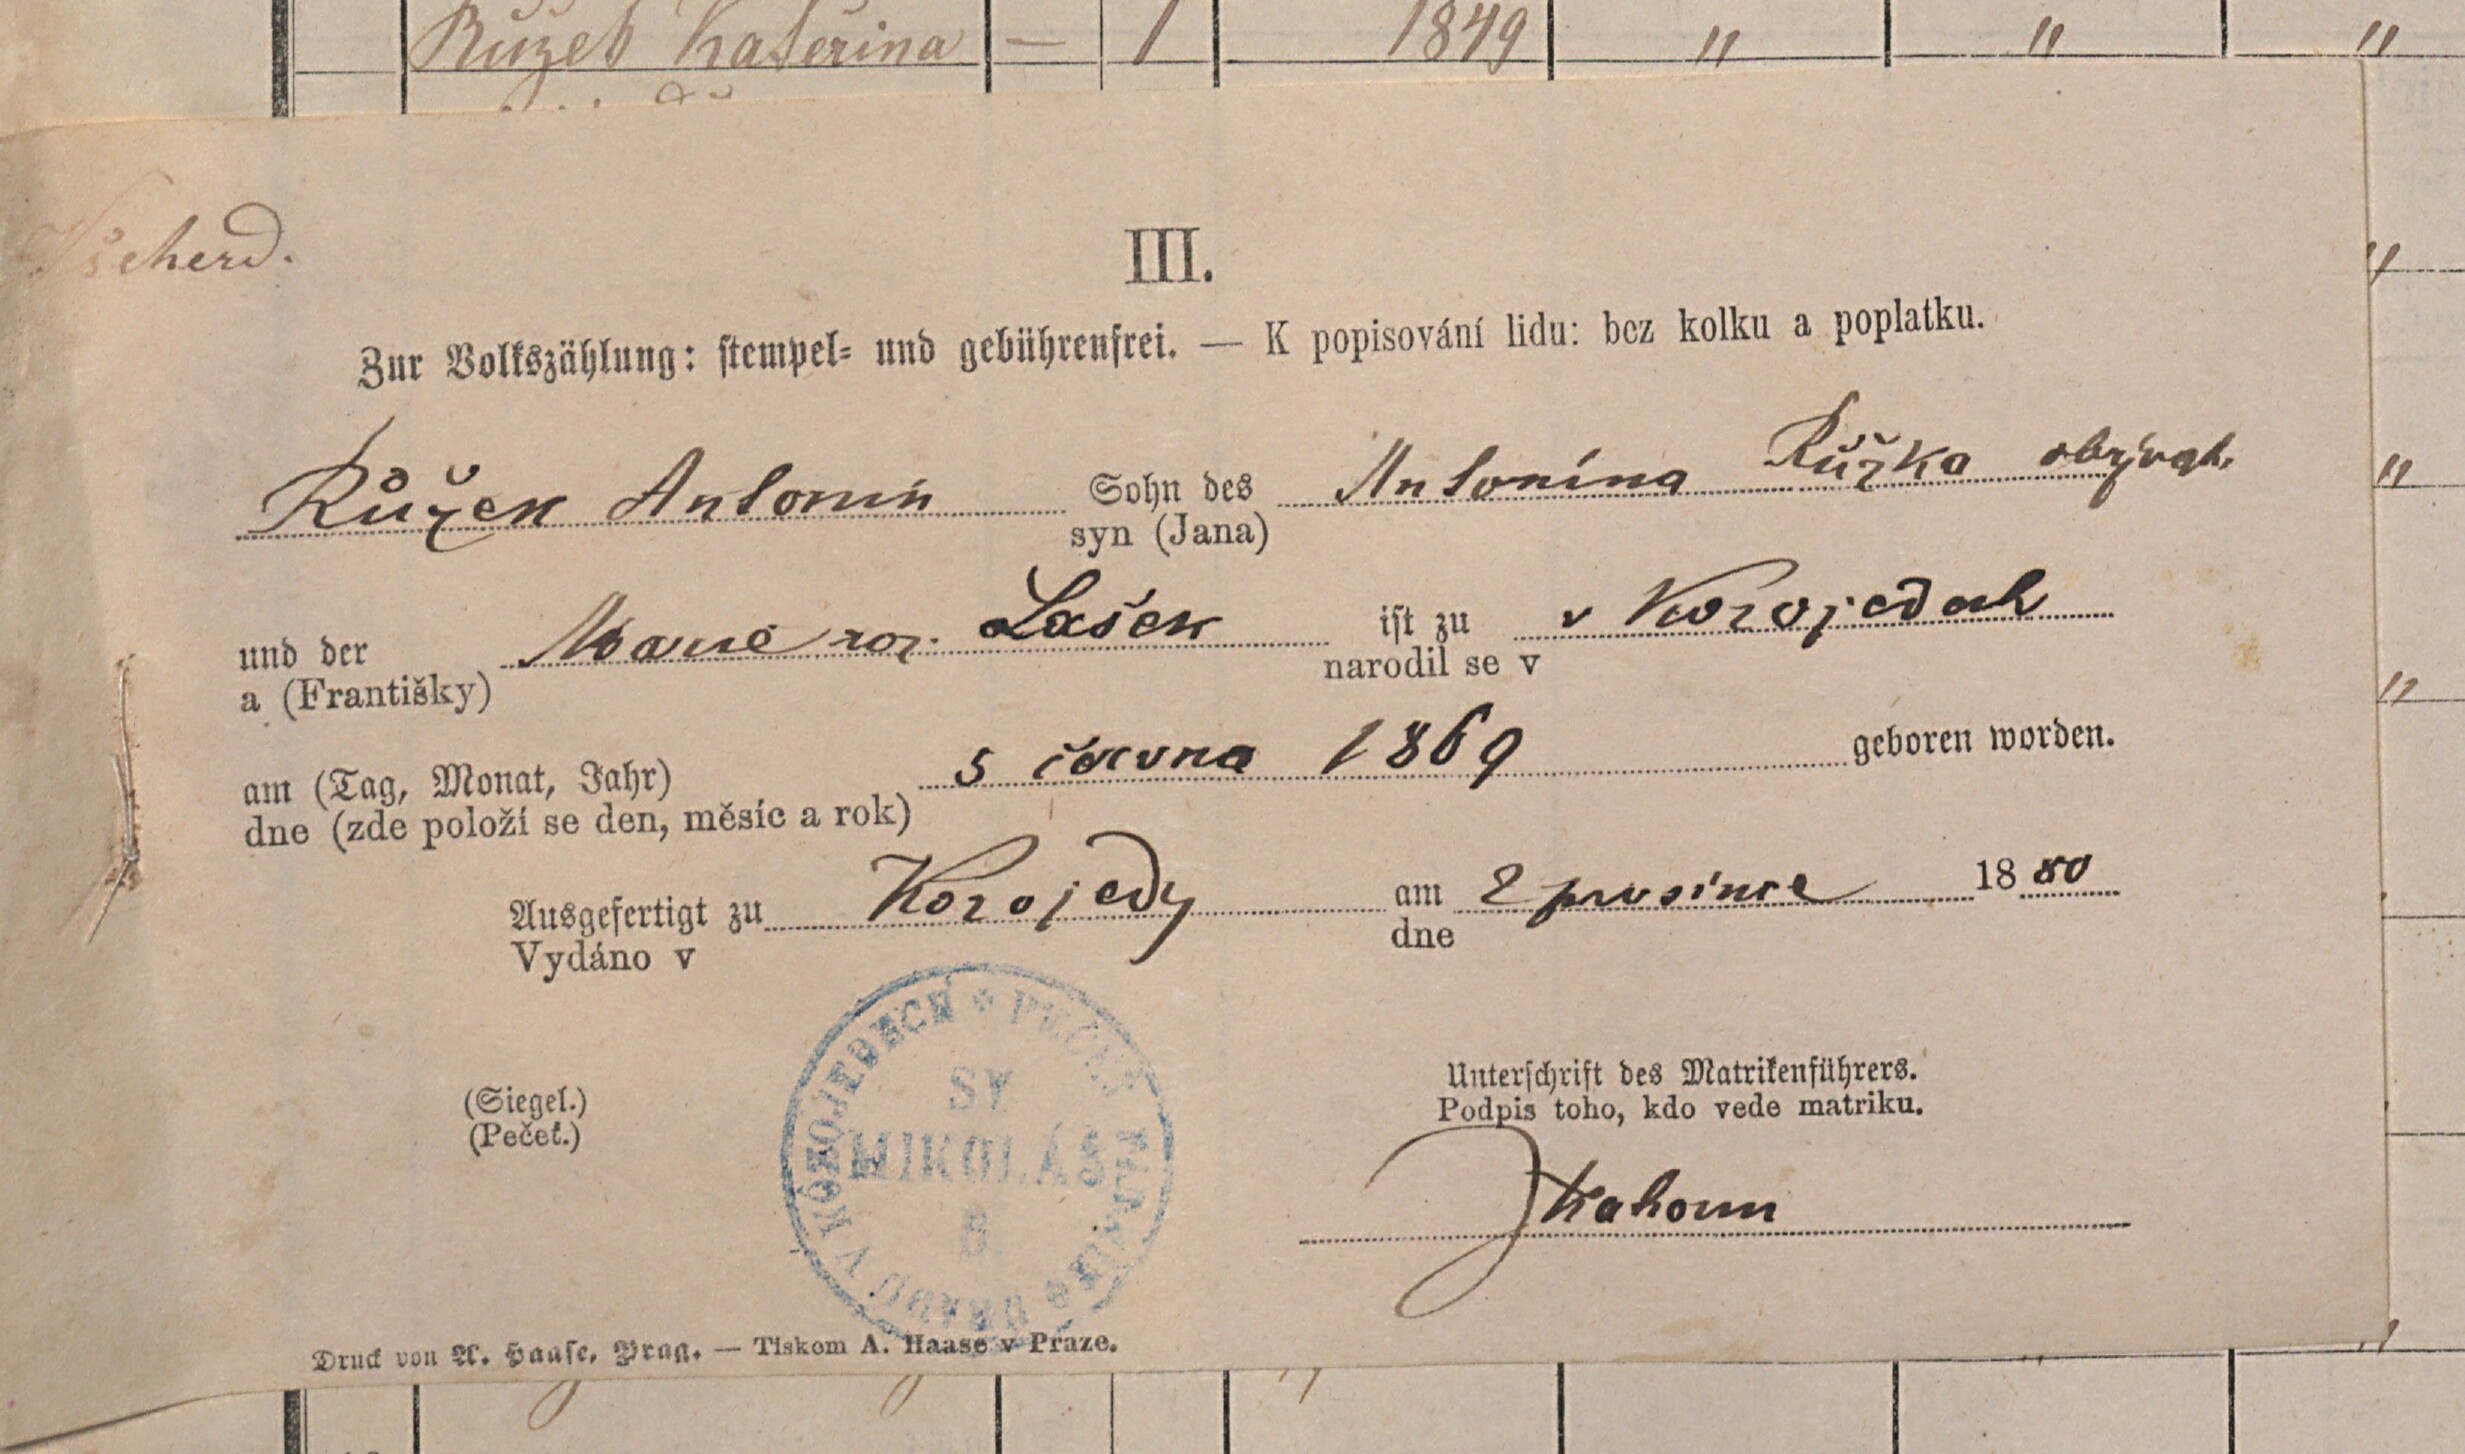 Růžek Kateřina — 1 1849 " " "
Všeherd.
III.
Zur Volkszählung: stempel- und gebührenfrei. — K popisování lidu: bez kolku a poplatku.
Růžek Antonín Sohn des Antonína Růžka obývat.
syn (Jana)
und der Marie roz. Lašek ist zu v Kozojedech
a (Františky) narodil se v
am (Tag, Monat, Jahr) 5 června 1869 geboren worden.
dne (zde položí se den, měsíc a rok)
Ausgefertigt zu Kozojedy am 2 prosince 1880
Vydáno v dne
(Siegel.) Unterschrift des Matrikenführers.
(Pečeť.) Podpis toho, kdo vede matriku.
SV.
MIKOLÁŠ
B.
ÚŘADU V KOZOJEDECH
JKahoun
Druck von A. Haase, Prag. — Tiskem A. Haase v Praze.